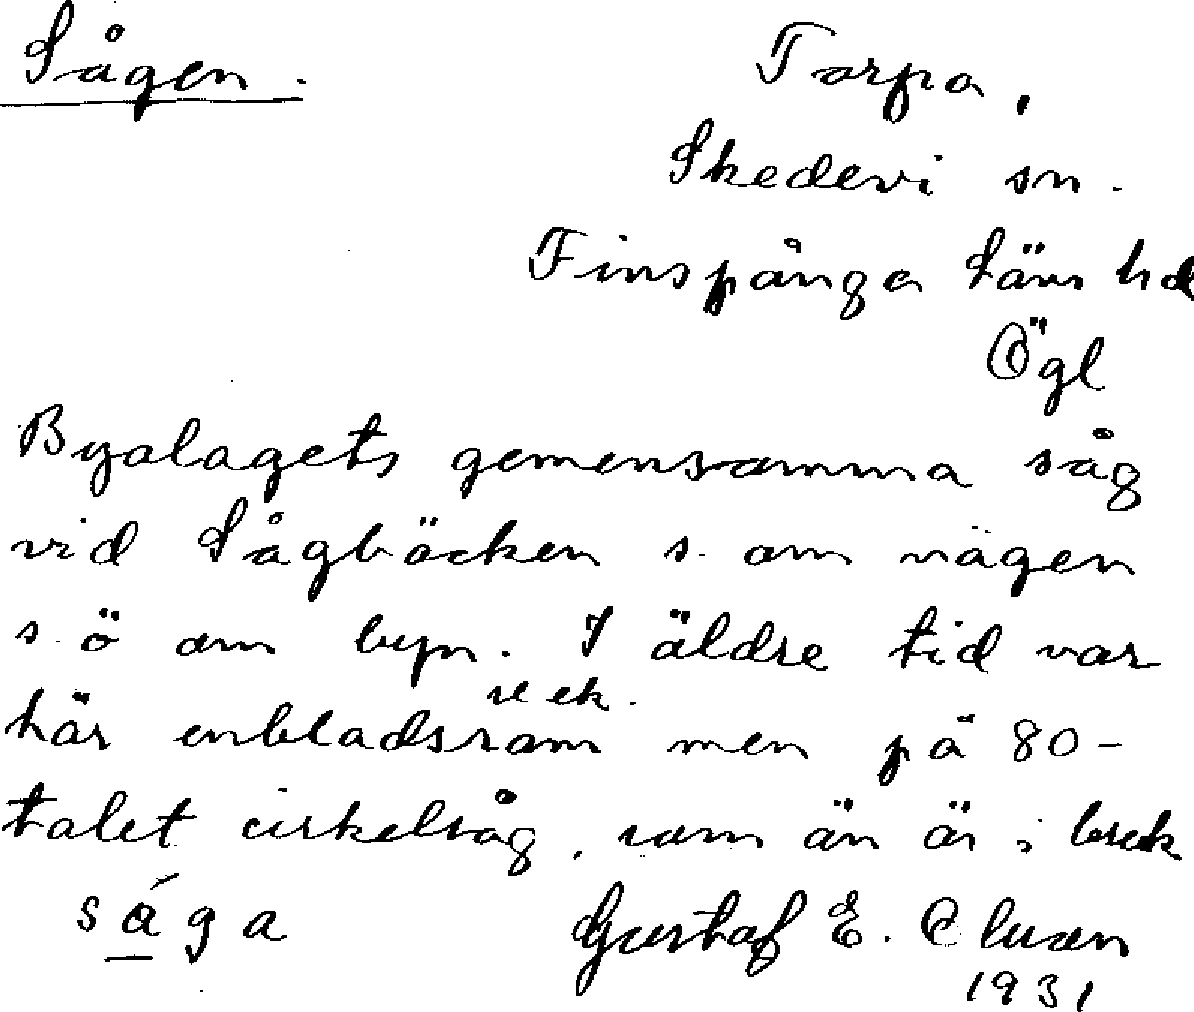 Sågen.
Torpa,
Skedevi sn.
Finspånga Läns hd
Ögl
Byalagets gemensamma såg
vid Sågbäcken s. om vägen
s. ö om byn. I äldre tid var
här enbladsram men på 80-
talet cirkelsåg, som än är i bruk
såga Gustaf E.
1931